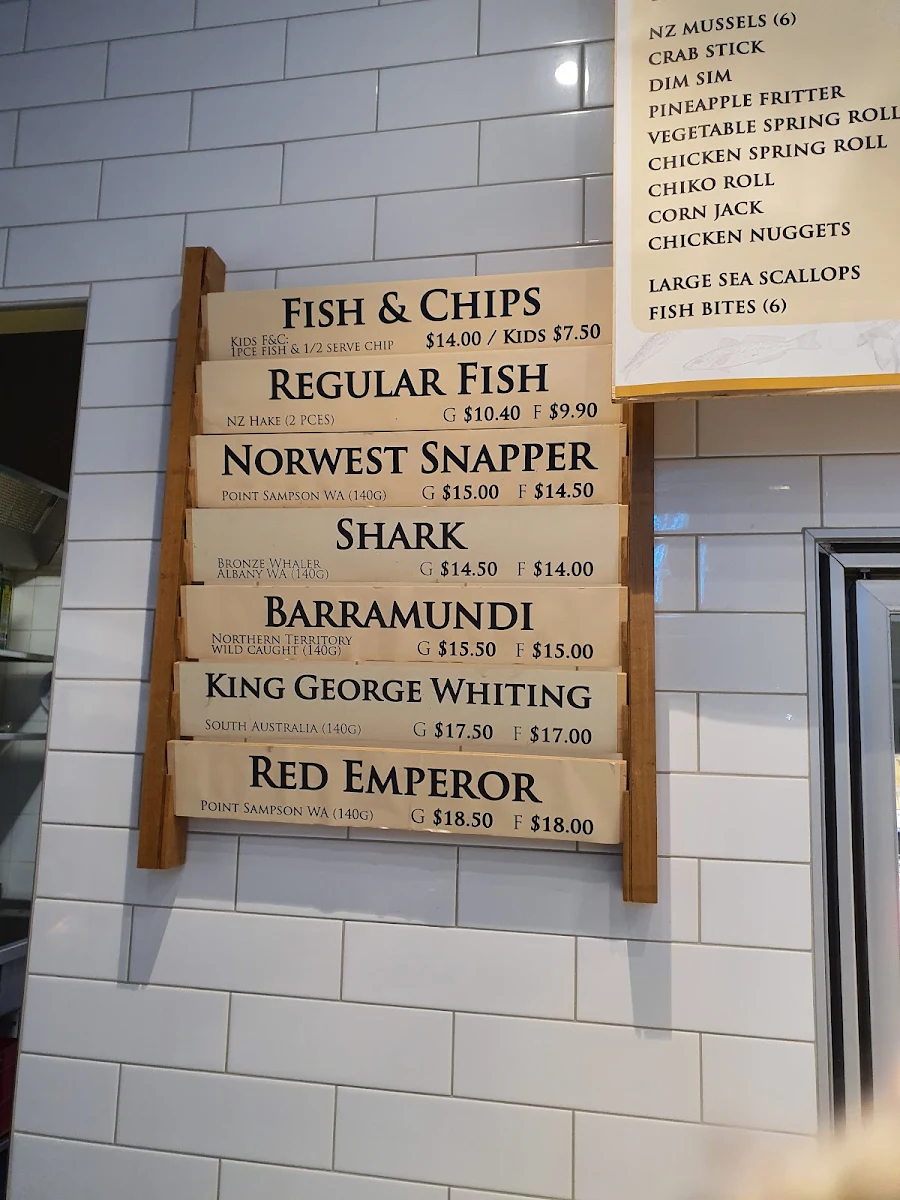 NZ MUSSELS (6)
CRAB STICK
DIM SIM
PINEAPPLE FRITTER
VEGETABLE SPRING ROLL
CHICKEN SPRING ROLL
CHIKO ROLL
CORN JACK
CHICKEN NUGGETS
LARGE SEA SCALLOPS
FISH BITES (6)
FISH & CHIPS
KIDS F&C:
1PCE FISH & 1/2 SERVE CHIP $14.00 / KIDS $7.50
REGULAR FISH
NZ HAKE (2 PCES) G $10.40 F $9.90
NORWEST SNAPPER
POINT SAMPSON WA (140G) G $15.00 F $14.50
SHARK
BRONZE WHALER
ALBANY WA (140G) G $14.50 F $14.00
BARRAMUNDI
NORTHERN TERRITORY
WILD CAUGHT (140G) G $15.50 F $15.00
KING GEORGE WHITING
SOUTH AUSTRALIA (140G) G $17.50 F $17.00
RED EMPEROR
POINT SAMPSON WA (140G) G $18.50 F $18.00